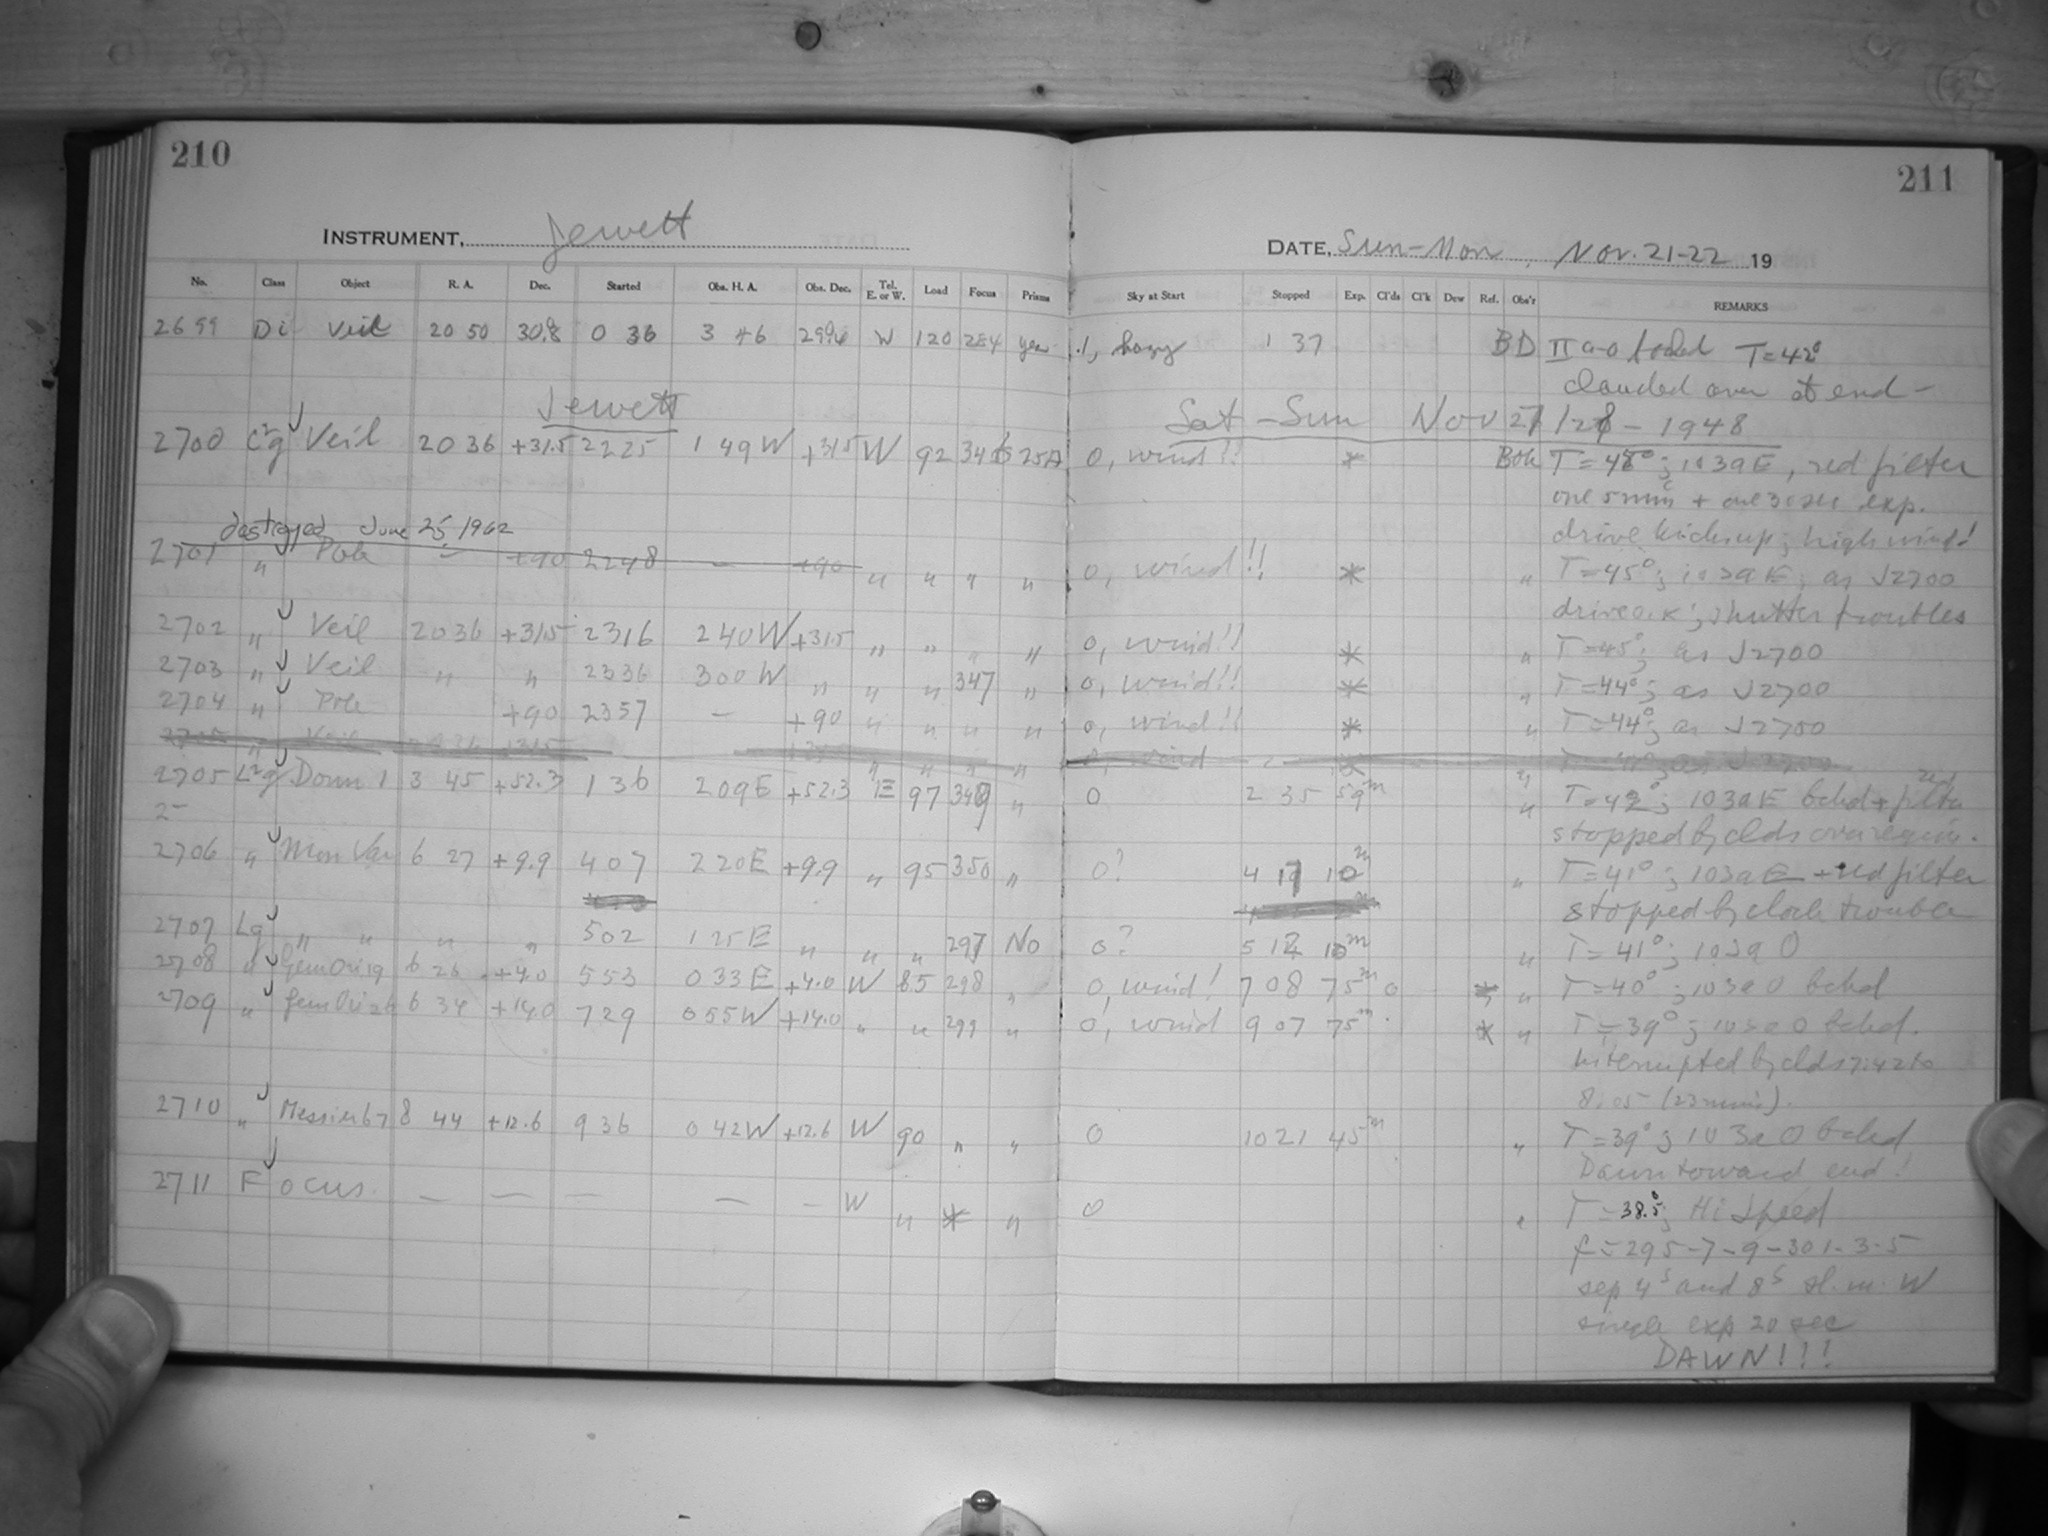 210
211
INSTRUMENT, Jewett
DATE, Sun-Mon, Nov. 21-22 19
No. Class Object R. A. Dec. Started Obs. H. A. Obs. Dec. Tel. E. or W. Load Focus Prisms Sky at Start Stopped Exp. Cl'ds Cl'k Dew Ref. Obs'r REMARKS
2699 Di Veil 20 50 0 36 3 46 W 120 284 yes .1, hazy 1 37 BD II a-o T=42°
clouded over at end -
Jewett Sat - Sun Nov 27/28 - 1948
2700 Veil 20 36 +31.5 22 25 1 49 W +31.5 W 92 25A 0, wind!! * Bok T=45°; 103aE, red filter
one 5 min + one 30 sec exp.
drive kicks up; high wind!
destroyed June 25, 1962
2701 " Pole - +90 22 48 - +90 " " " " 0, wind!! * " T=45°; 103aE; as J2700
drive o.k.; shutter troubles
2702 " Veil 20 36 +31.5 23 16 2 40 W +31.5 " " " " 0, wind!! * " T=45°; as J2700
2703 " Veil " " 23 36 3 00 W " " " 347 " 0, wind!! * " T=44°; as J2700
2704 " Pole +90 23 57 - +90 " " " " 0, wind!! * " T=44°; as J2700
2705 Veil 20 36 +31.5 0, wind as J2700
2705 Donn 1 3 45 +52.3 1 36 2 09 E +52.3 E 97 349 " 0 2 35 59m " T=42°; 103aE bckd + red filter
stopped by clds over region.
2706 " Mon Var 6 27 +9.9 4 07 2 20 E +9.9 " 95 350 " 0? 4 17 10m " T=41°; 103aE + red filter
stopped by clock trouble
2707 Lg " " " " 5 02 1 25 E " " " 297 No 0? 5 12 10m " T=41°; 103aO
2708 " GemOri19 6 26 +4.0 5 53 0 33 E +4.0 W 85 298 " 0, wind! 7 08 75m 0 * " T=40°; 103aO bckd
2709 " GemOri26 6 34 +14.0 7 29 0 55 W +14.0 " " 299 " 0, wind 9 07 75m * " T=39°; 103aO bckd.
Interrupted by clds 7:42 to
8:05 (23 min).
2710 " Messier 67 8 44 +12.6 9 36 0 42 W +12.6 W 90 " " 0 10 21 45m " T=39°; 103aO bckd
Dawn toward end!
2711 Focus. - - - - - W " * " 0 " T=38.5°; Hi Speed
f=295-7-9-301-3-5
sep 4s and 8s W
single exp 20 sec
DAWN!!!